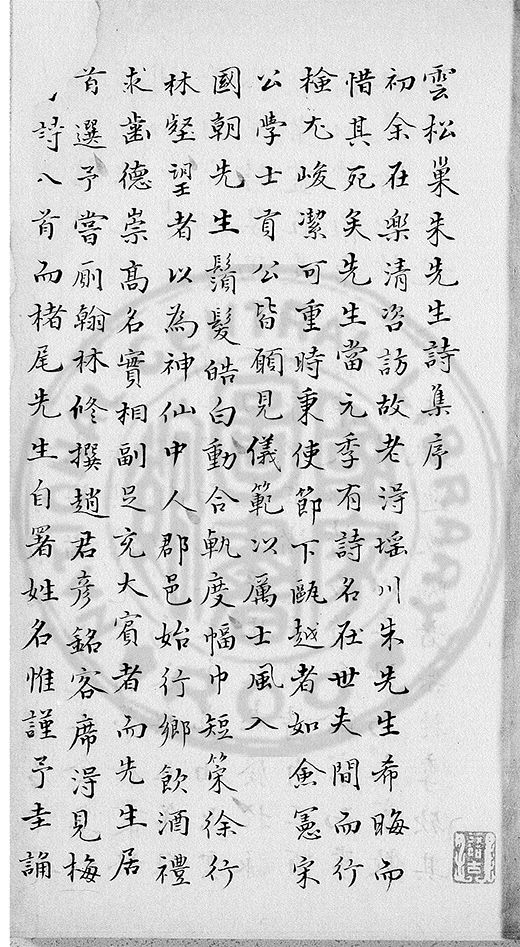 雲松巢朱先生詩集序
初余在樂清咨訪故老淂瑶川朱先生希晦而
惜其死矣先生當元季有詩名在世夫間而行
檢尤峻潔可重時秉使節下甌越者如僉憲宋
公學士貢公皆願見儀範以厲士風入
國朝先生鬚髮皓白動合軌度幅巾短策徐行
林壑望者以為神仙中人郡邑始行鄉飲酒禮
求齒德崇高名實相副足充大賓者而先生居
首選予嘗厠翰林修撰趙君彦銘客席淂見梅
詩八首而楮尾先生自署姓名惟謹予圭誦